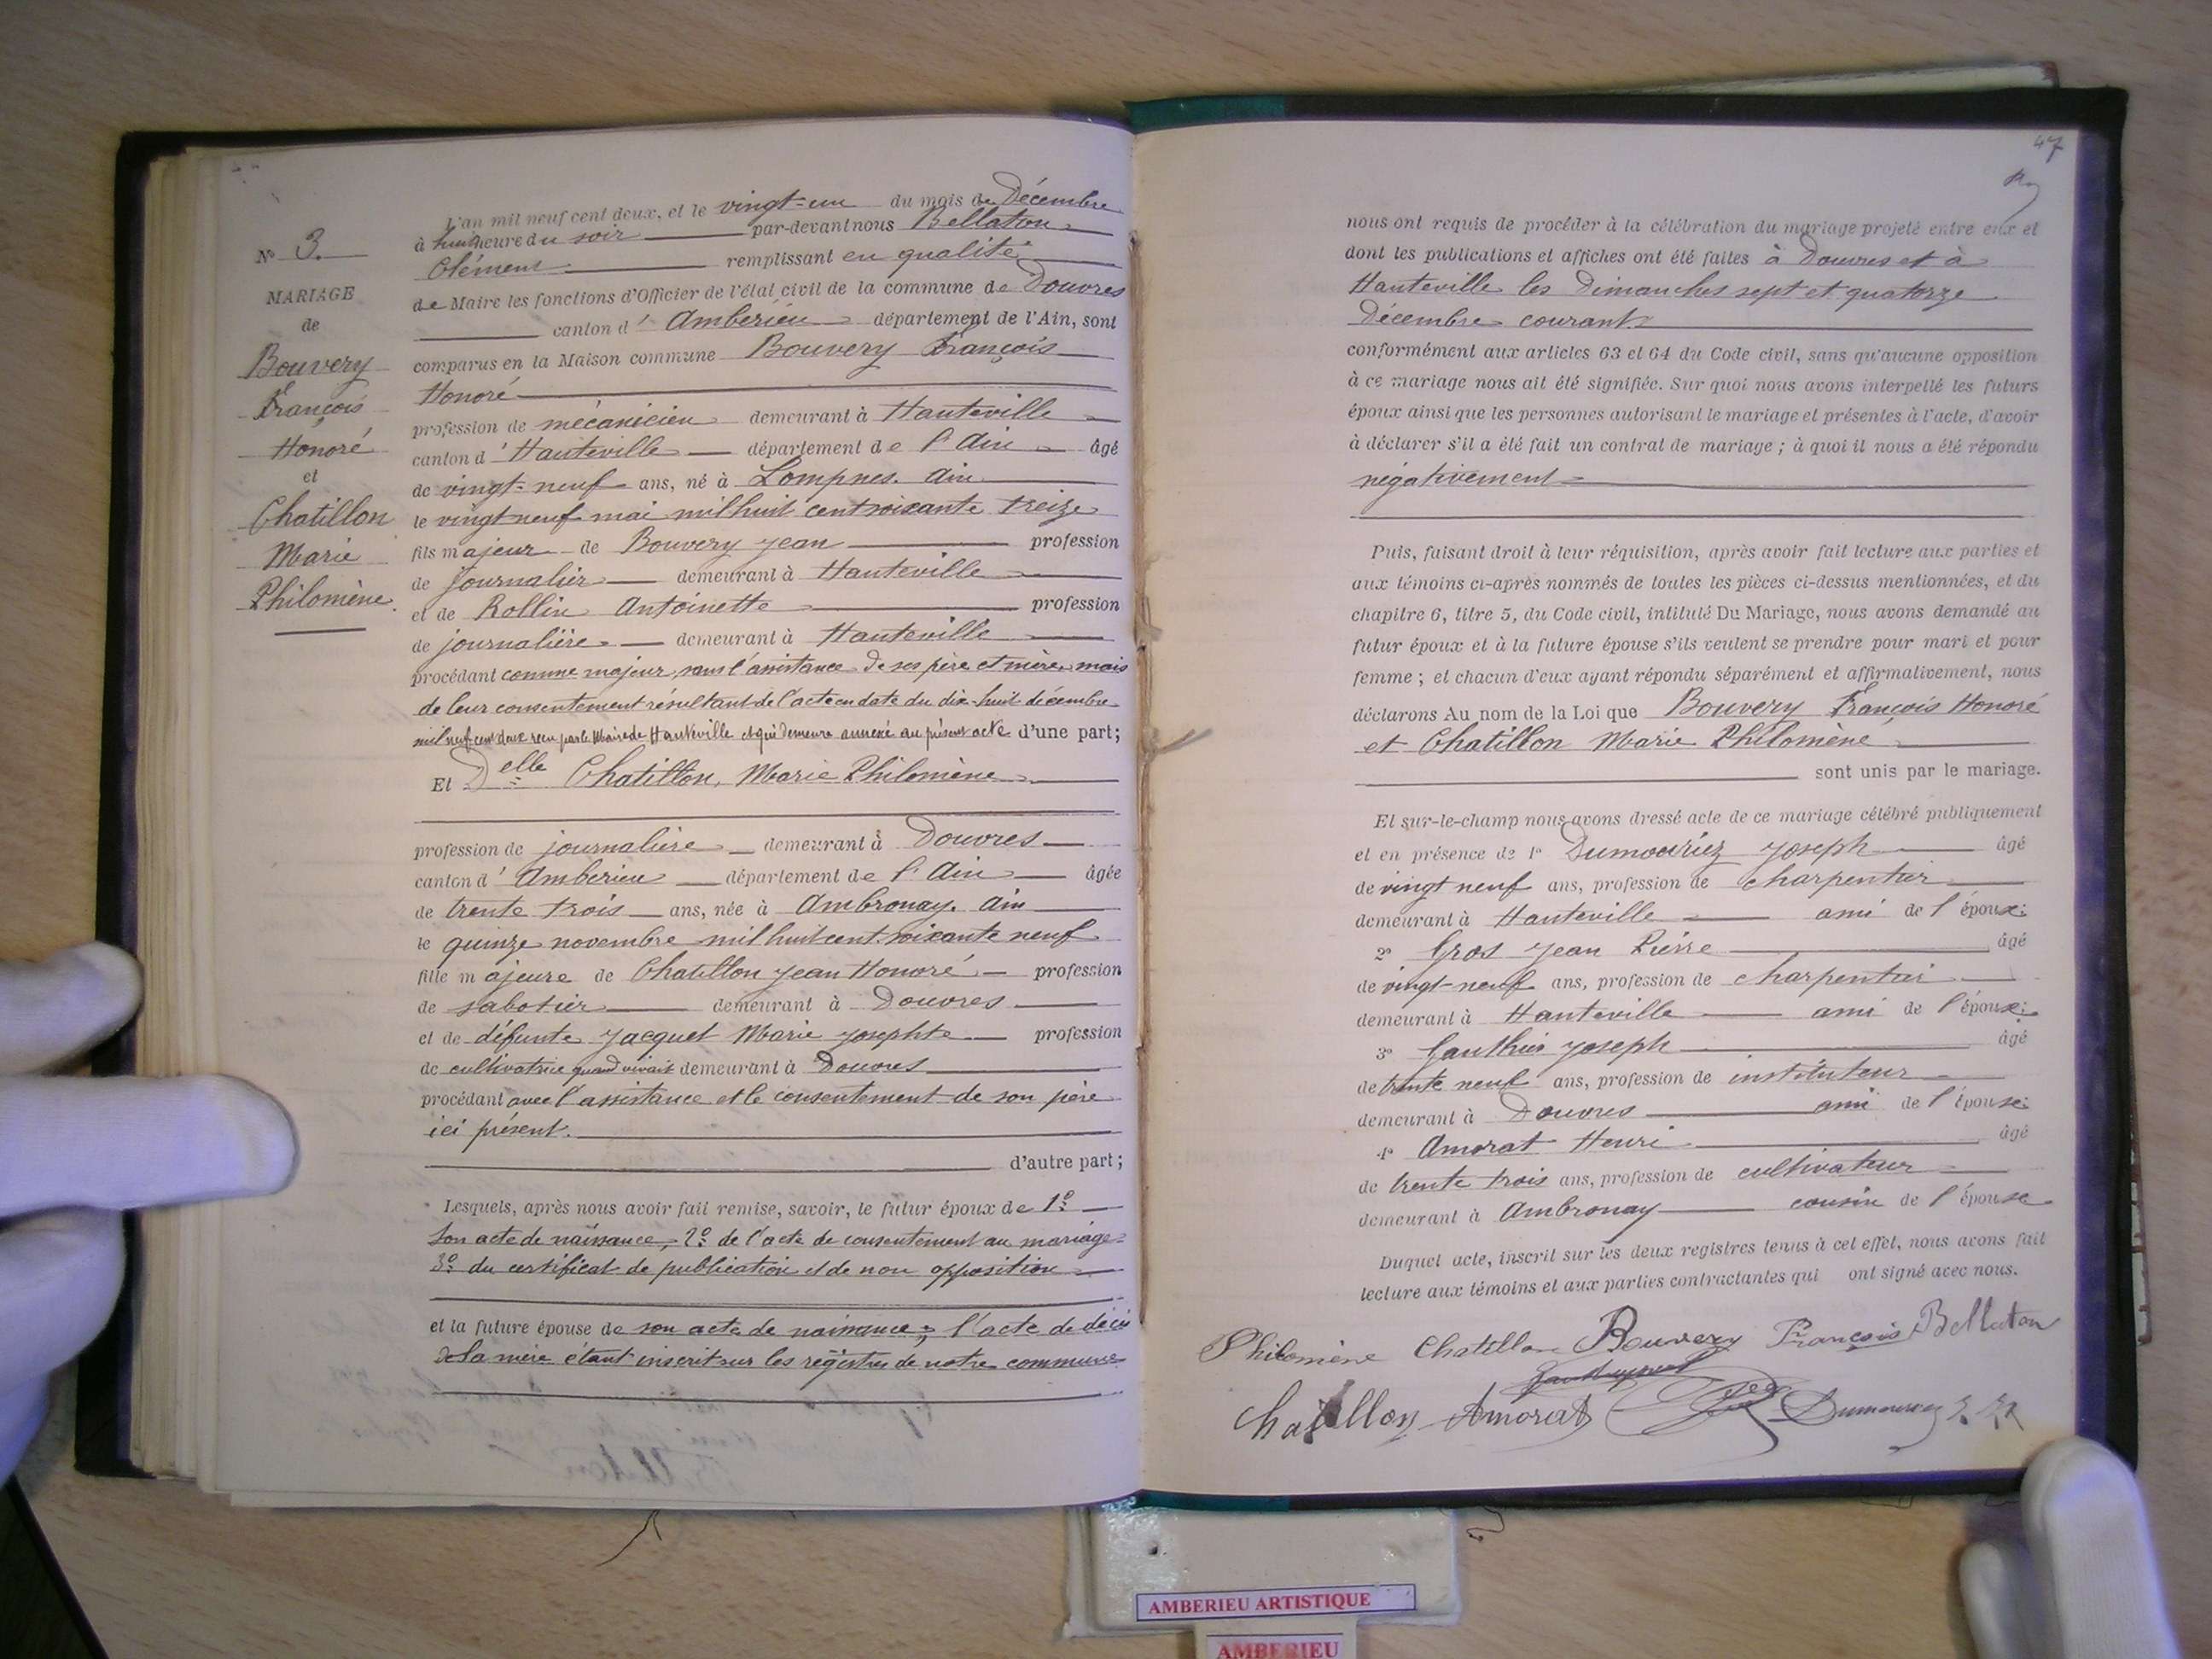 N° 3.
MARIAGE
de
Bouvery
François
Honoré
et
Chatillon
Marie
Philomène
L'an mil neuf cent deux, et le vingt-un du mois de Décembre
à huit heure du soir par-devant nous Bellaton
Clément remplissant en qualité
de Maire les fonctions d'Officier de l'état civil de la commune de Douvres
canton d' Ambérieu département de l'Ain, sont
comparus en la Maison commune Bouvery François
Honoré
profession de mécanicien demeurant à Hauteville
canton d' Hauteville département de l'Ain âgé
de vingt-neuf ans, né à Lompnes. Ain
le vingt neuf mai mil huit cent soixante treize
fils majeur de Bouvery Jean profession
de journalier demeurant à Hauteville
et de Rollin Antoinette profession
de journalière demeurant à Hauteville
procédant comme majeur, sans l'assistance de ses père et mère mais
de leur consentement résultant de l'acte en date du dix-huit décembre
mil neuf cent deux reçu par le Maire de Hauteville et qui demeure annexé au présent acte d'une part;
Et Delle Chatillon, Marie Philomène
profession de journalière demeurant à Douvres
canton d' Ambérieu département de l'Ain âgée
de trente trois ans, née à Ambronay. Ain
le quinze novembre mil huit cent soixante neuf
fille majeure de Chatillon Jean Honoré profession
de sabotier demeurant à Douvres
et de défunte Jacquet Marie Josephte profession
de cultivatrice quand vivait demeurant à Douvres
procédant avec l'assistance et le consentement de son père
ici présent.
d'autre part;
Lesquels, après nous avoir fait remise, savoir, le futur époux de 1°
Son acte de naissance, 2° de l'acte de consentement au mariage
3° du certificat de publication et de non opposition
et la future épouse de son acte de naissance; l'acte de décès
de la mère étant inscrit sur les registres de notre commune
47
nous ont requis de procéder à la célébration du mariage projeté entre eux et
dont les publications et affiches ont été faites à Douvres et à
Hauteville les Dimanches sept et quatorze
Décembre courant
conformément aux articles 63 et 64 du Code civil, sans qu'aucune opposition
à ce mariage nous ait été signifiée. Sur quoi nous avons interpellé les futurs
époux ainsi que les personnes autorisant le mariage et présentes à l'acte, d'avoir
à déclarer s'il a été fait un contrat de mariage; à quoi il nous a été répondu
négativement
Puis, faisant droit à leur réquisition, après avoir fait lecture aux parties et
aux témoins ci-après nommés de toutes les pièces ci-dessus mentionnées, et du
chapitre 6, titre 5, du Code civil, intitulé Du Mariage, nous avons demandé au
futur époux et à la future épouse s'ils veulent se prendre pour mari et pour
femme; et chacun d'eux ayant répondu séparément et affirmativement, nous
déclarons Au nom de la Loi que Bouvery François Honoré
et Chatillon Marie Philomène
sont unis par le mariage.
Et sur-le-champ nous avons dressé acte de ce mariage célébré publiquement
et en présence de 1° Dumouriez Joseph âgé
de vingt neuf ans, profession de charpentier
demeurant à Hauteville ami de l'époux;
2° Gros Jean Pierre âgé
de vingt-neuf ans, profession de charpentier
demeurant à Hauteville ami de l'époux;
3° Gauthier Joseph âgé
de trente neuf ans, profession de instituteur
demeurant à Douvres ami de l'épouse;
4° Amorat Henri âgé
de trente trois ans, profession de cultivateur
demeurant à Ambronay cousin de l'épouse
Duquel acte, inscrit sur les deux registres tenus à cet effet, nous avons fait
lecture aux témoins et aux parties contractantes qui ont signé avec nous.
Philomène Chatillon Bouvery François Bellaton
Chatillon Amorat Dumouriez
AMBERIEU ARTISTIQUE
AMBERIEU